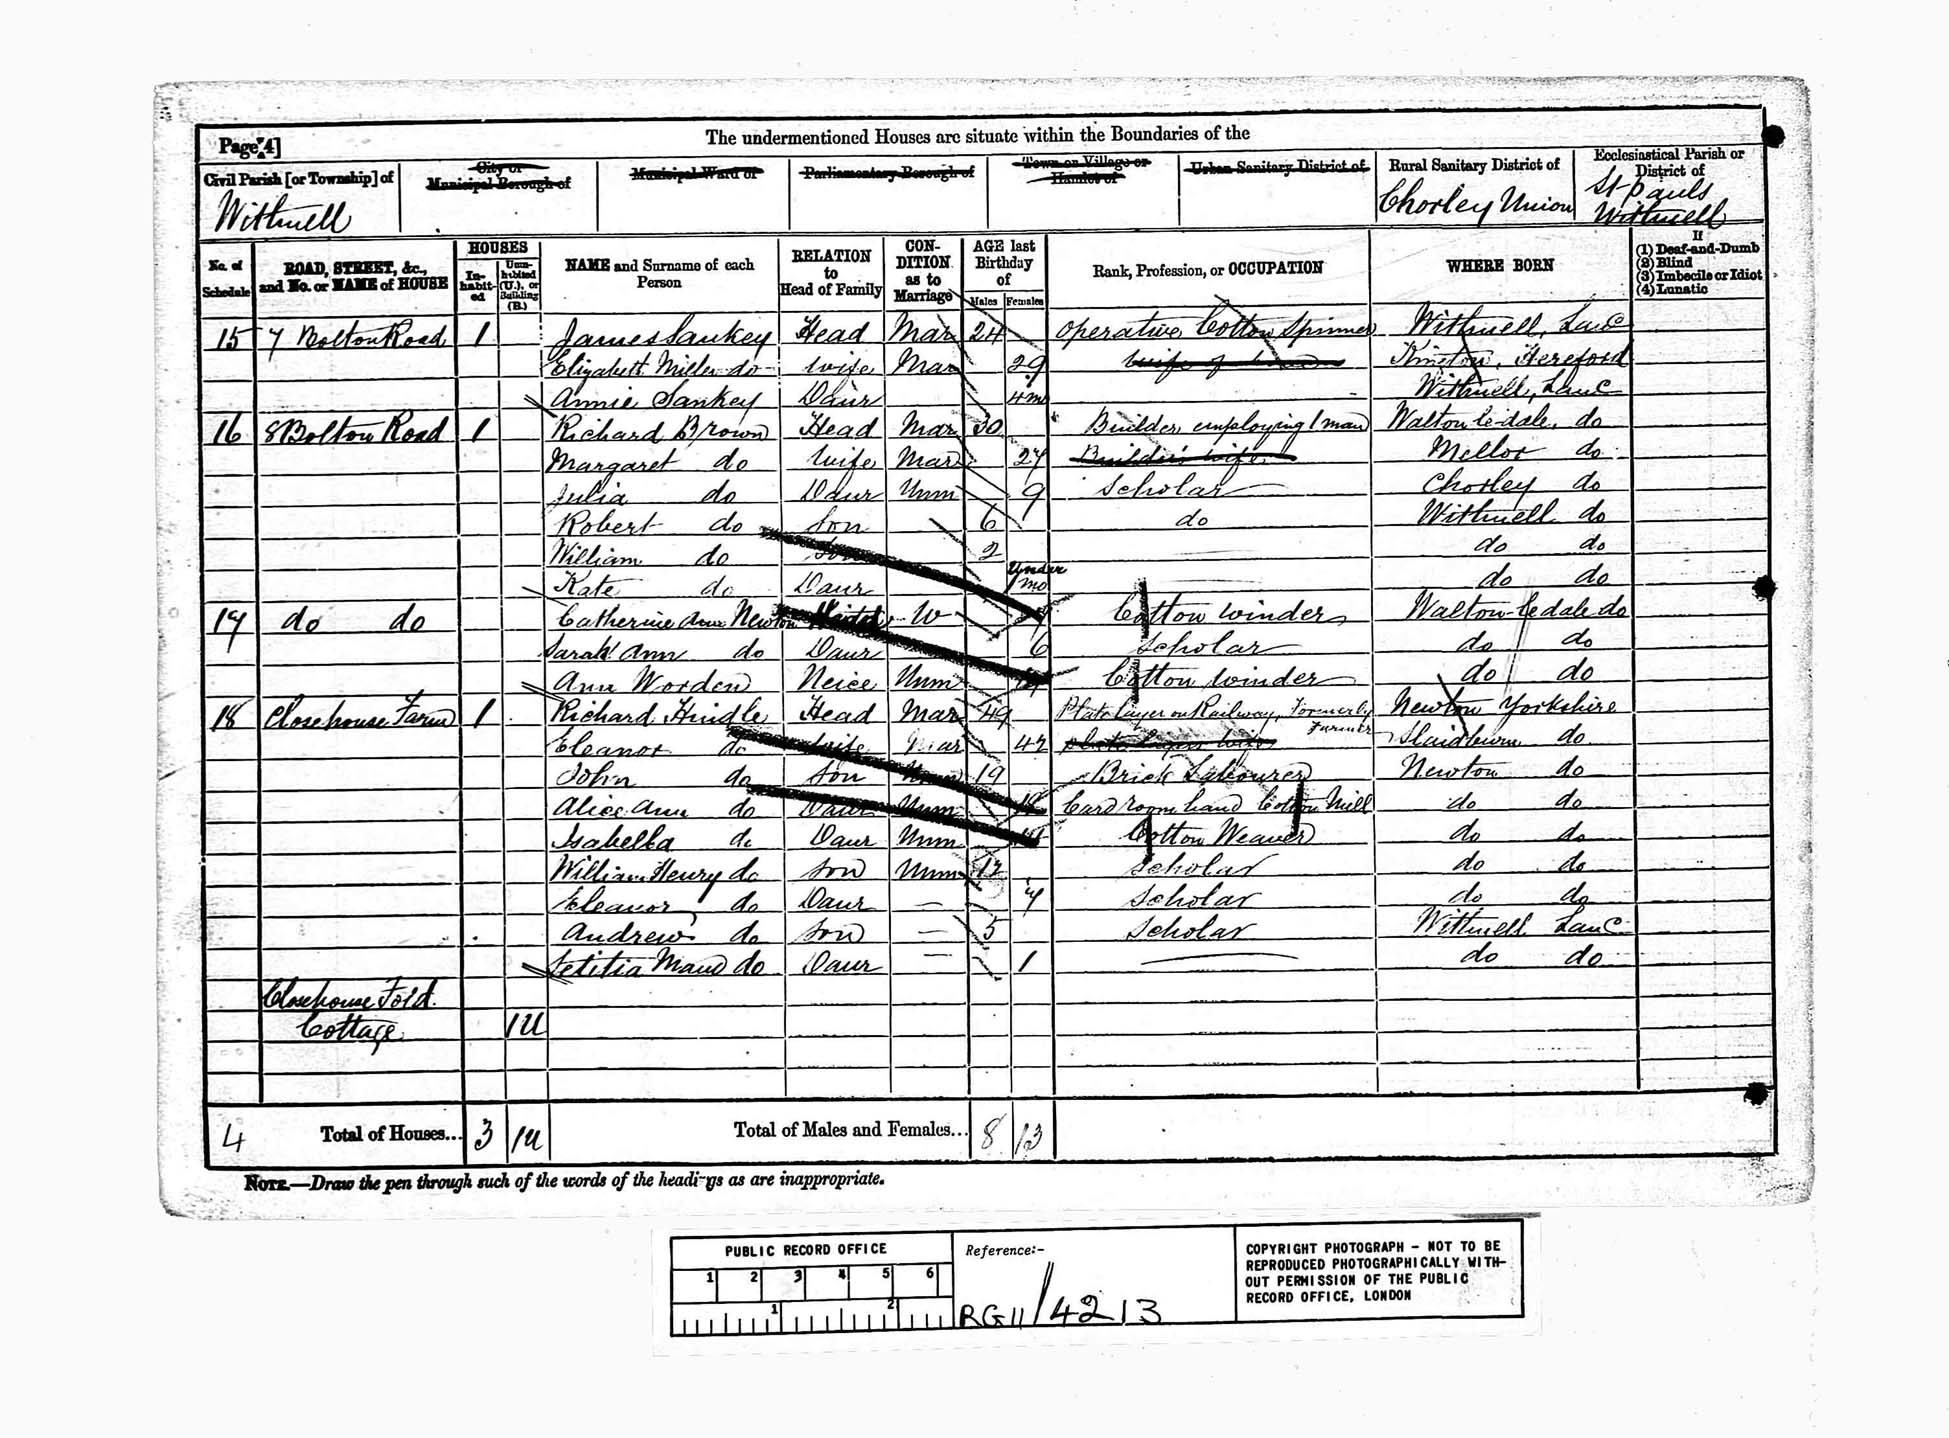 Page 4]
The undermentioned Houses are situate within the Boundaries of the
Civil Parish [or Township] of
City or Municipal Borough of
Municipal Ward of
Parliamentary Borough of
Town or Village or Hamlet of
Urban Sanitary District of
Rural Sanitary District of
Ecclesiastical Parish or District of
Withnell
Chorley Union
St Pauls Withnell
No. of Schedule
ROAD, STREET, &c., and No. or NAME of HOUSE
HOUSES
In-habit-ed
Unin-habited (U.), or Building (B.)
NAME and Surname of each Person
RELATION to Head of Family
CON-DITION as to Marriage
AGE last Birthday of
Males Females
Rank, Profession, or OCCUPATION
WHERE BORN
If
(1) Deaf-and-Dumb
(2) Blind
(3) Imbecile or Idiot
(4) Lunatic
15 7 Bolton Road 1 James Sankey Head Mar 24 Operative Cotton Spinner Withnell, Lanc
Elizabeth Miller do wife Mar 29 wife of Kington, Hereford
Annie Sankey Daur 4 mo Withnell, Lanc
16 8 Bolton Road 1 Richard Brown Head Mar 30 Builder employing 1 man Walton-le-dale, do
Margaret do wife Mar 27 Builder's wife Mellor do
Julia do Daur Unm 9 Scholar Chorley do
Robert do Son 6 do Withnell do
William do Son 2 do do
Kate do Daur Under mo do do
17 do do Catherine Ann Newton W Cotton winder Walton-ledale do
Sarah Ann do Daur 6 Scholar do do
Ann Worden Neice Unm Cotton winder do do
18 Closehouse Farm 1 Richard Hindle Head Mar 49 Plate layer on Railway, Formerly Farmer Newton Yorkshire
Eleanor do wife Mar 42 plate layers wife Slaidburn do
John do Son Unm 19 Brick Labourer Newton do
Alice Ann do Daur Unm Card room hand Cotton Mill do do
Isabella do Daur Unm Cotton Weaver do do
William Henry do Son Unm 12 Scholar do do
Eleanor do Daur — 7 Scholar do do
Andrew do Son — 5 Scholar Withnell Lanc
Letitia Maud do Daur — 1 do do
Closehouse Fold
Cottage 1U
4 Total of Houses... 3 1U Total of Males and Females... 8 13
NOTE.—Draw the pen through such of the words of the headings as are inappropriate.
PUBLIC RECORD OFFICE
1 2 3 4 5 6
1 2
Reference:-
RG11/4213
COPYRIGHT PHOTOGRAPH - NOT TO BE
REPRODUCED PHOTOGRAPHICALLY WITH-
OUT PERMISSION OF THE PUBLIC
RECORD OFFICE, LONDON